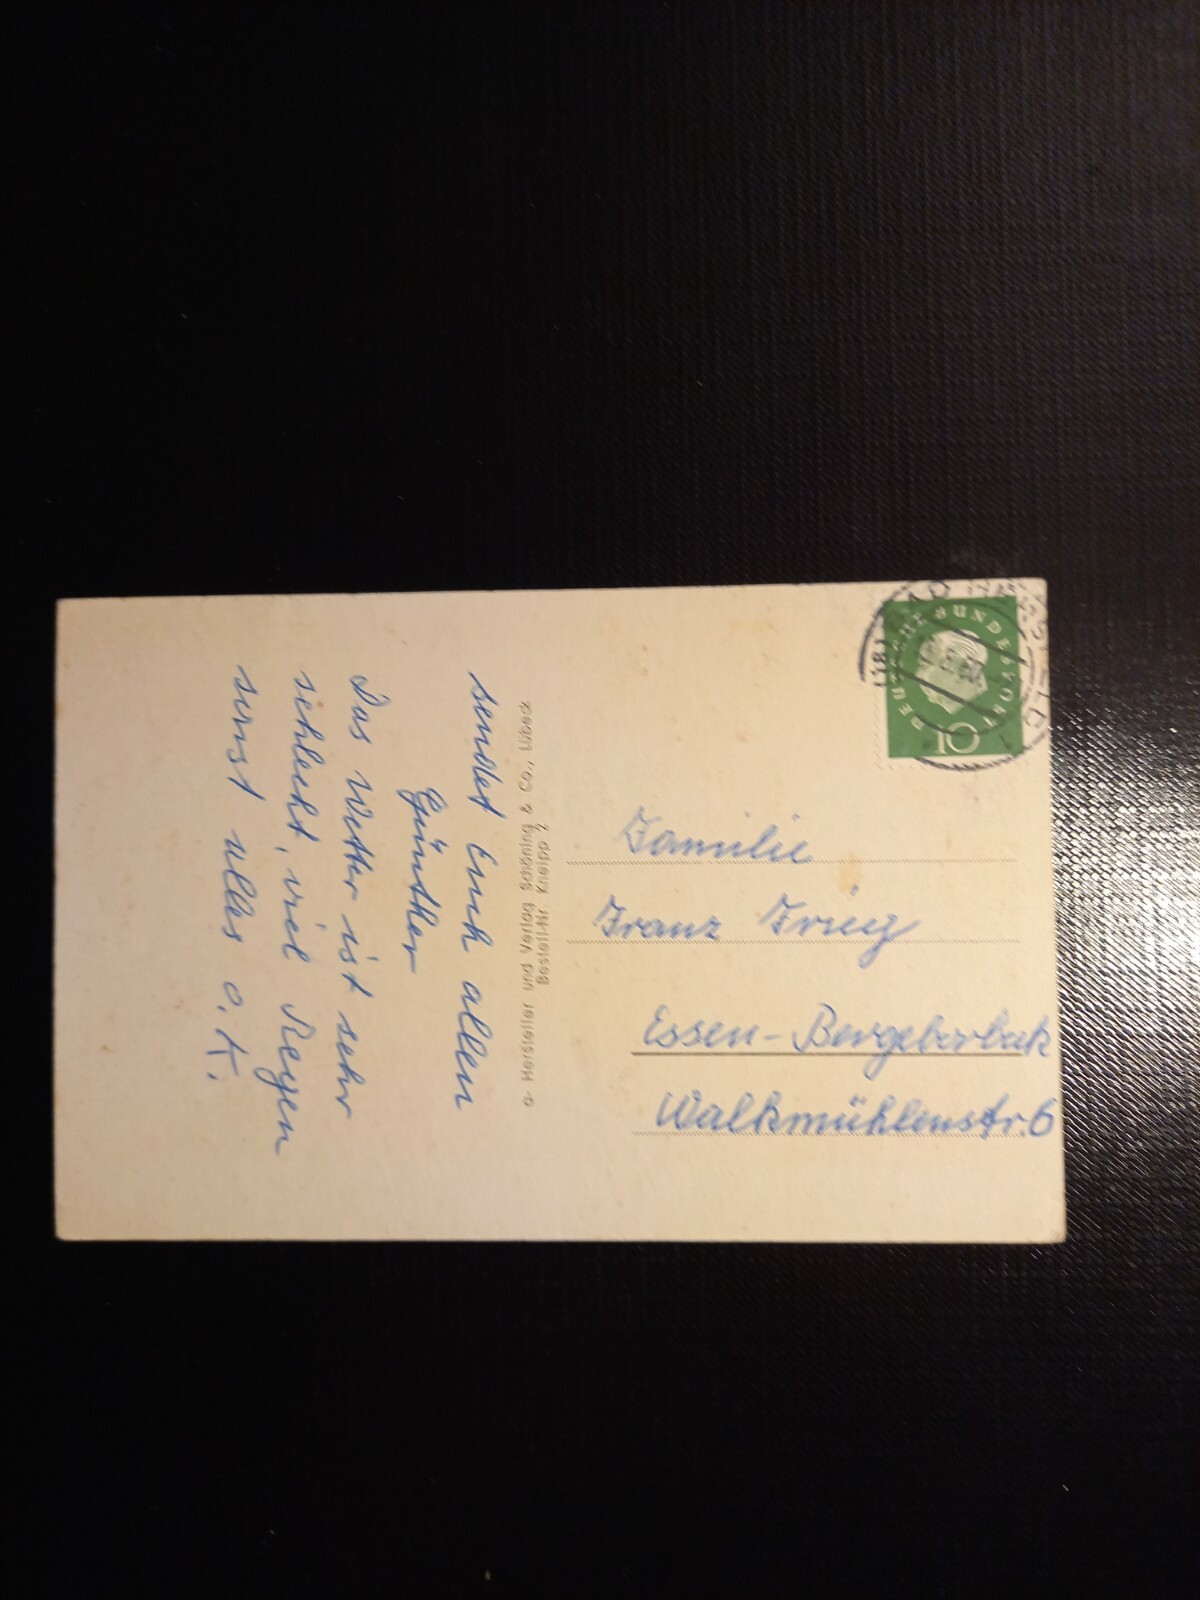 sendet Euch allen
Günther
Das Wetter ist sehr
schlecht, viel Regen
sonst alles o.K.
Hersteller und Verlag Schöning & Co., Lübeck
Bestell-Nr. Kneipp 2
DEUTSCHE BUNDESPOST
10
Familie
Franz Frieg
Essen-Bergeborbek
Walkmühlenstr. 6